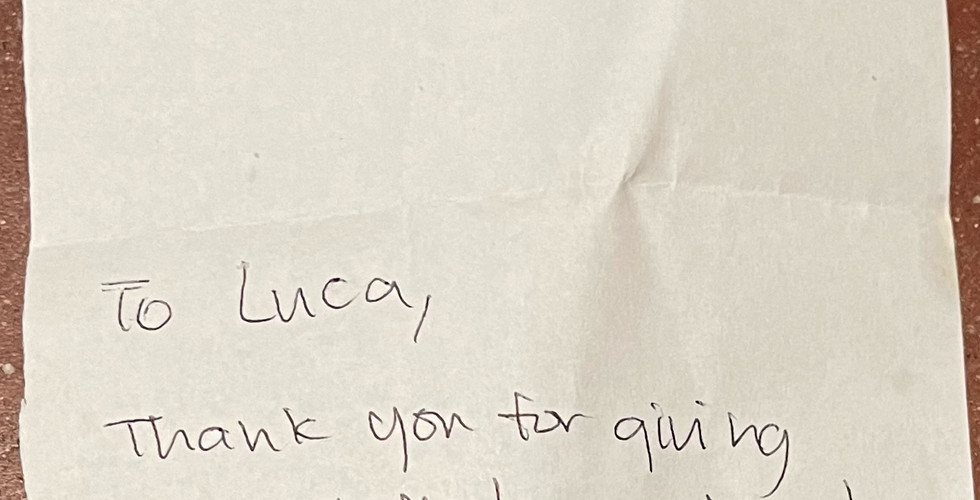 To Luca,
Thank you for giving